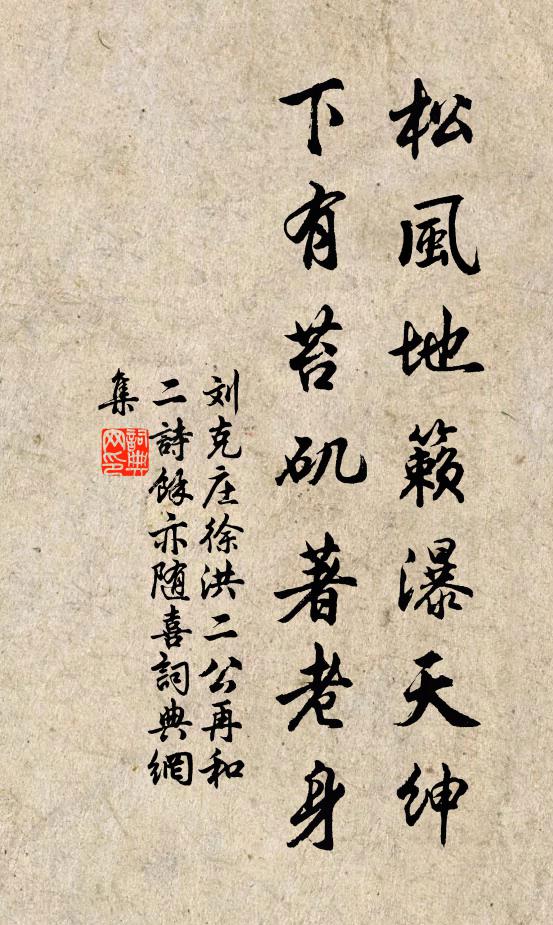 松風地籟瀑天紳
下有苔矶著老身
刘克庄徐洪二公再和
二詩餘亦随喜詞典網
集
詞典
网印